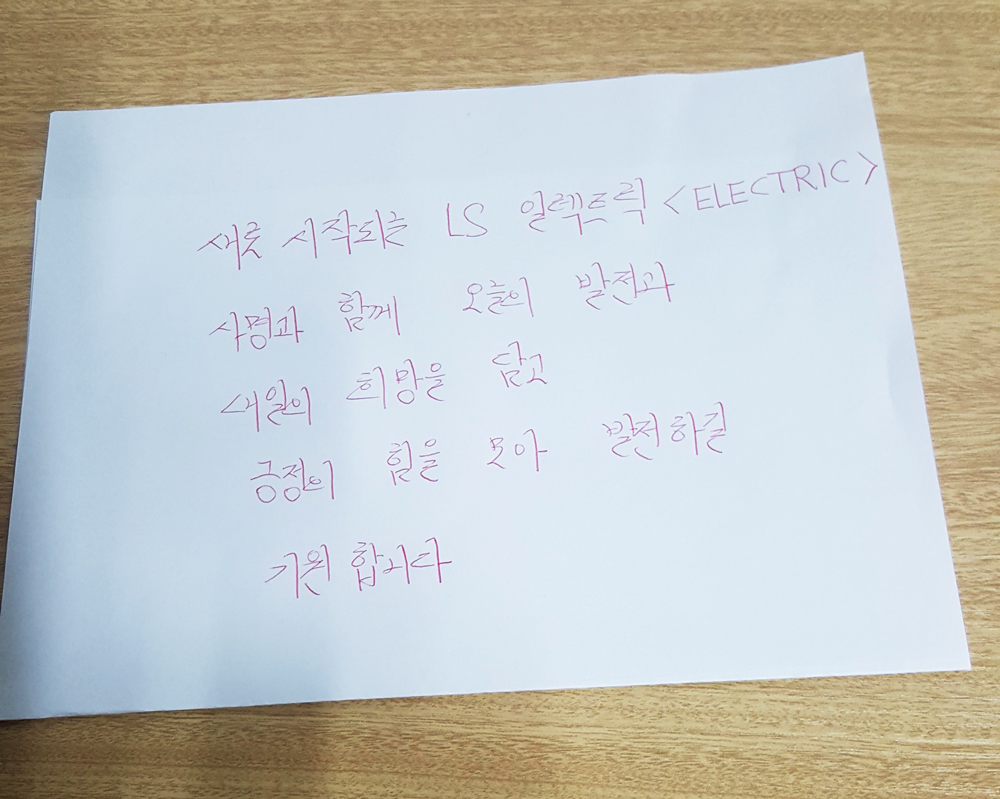 새롯 시작되는 LS 일렉트릭 <ELECTRIC>
사명과 함께 오늘의 발전과
내일의 희망을 담고
긍정의 힘을 모아 발전하길
기원 합니다